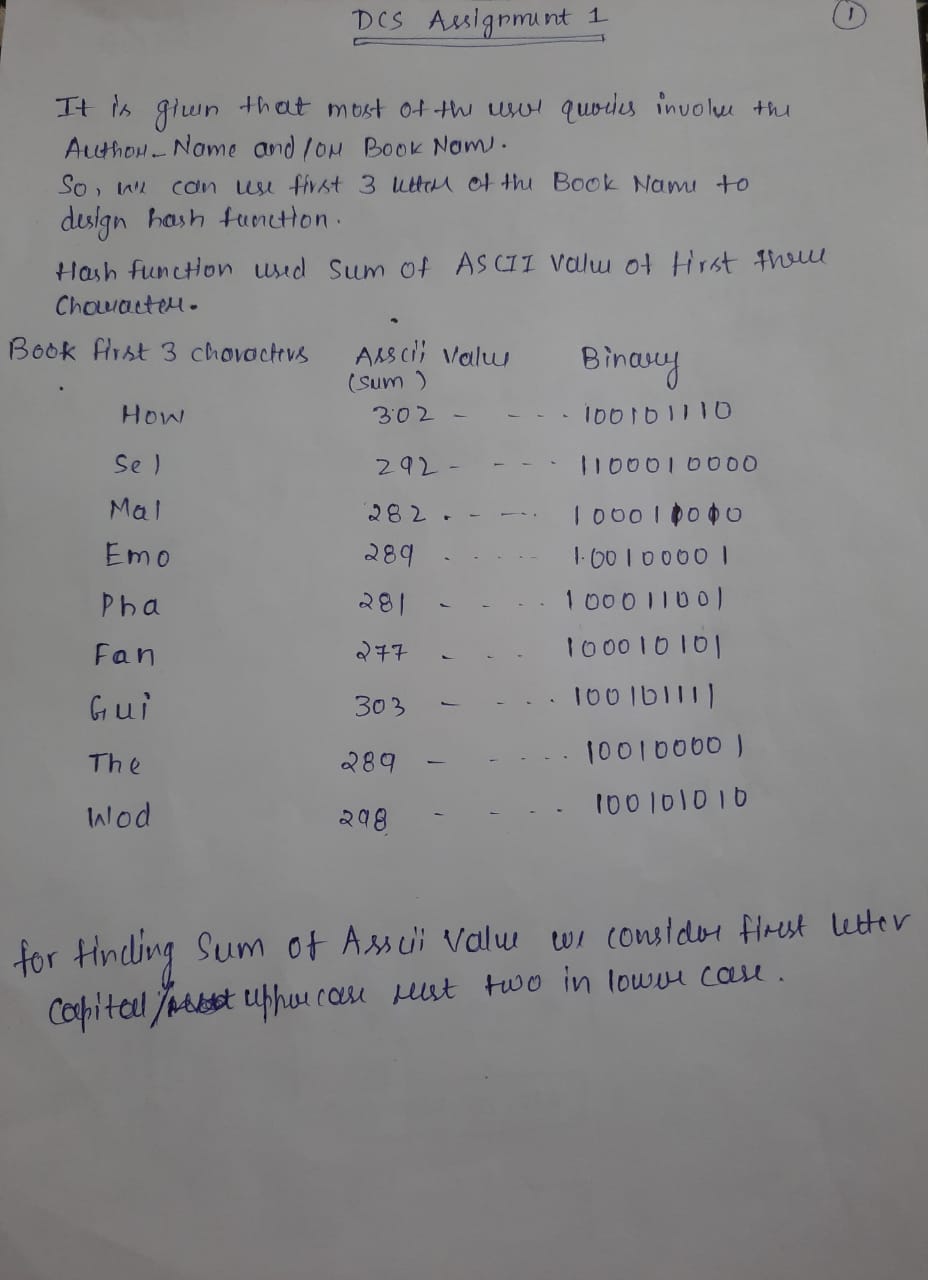 DCS Assignment 1
1
It is given that most of the user queries involve the
Author_Name and/or Book Name.
So, we can use first 3 letter of the Book Name to
design hash function.
Hash function used Sum of ASCII value of first three
Character.
Book first 3 characters Asscii Value Binary
(sum)
How 302 - - - - 100101110
Sel 292 - - - - 1100010000
Mal 282 . - - . 100010000
Emo 289 . . . . . 100100001
Pha 281 - - . . 100011001
Fan 277 - - . 100010101
Gui 303 - - . . 100101111
The 289 - - . . . 100100001
Wod 298 - - . . 100101010
for finding Sum of Asscii value we consider first letter
Capital/ upper case rest two in lower case.